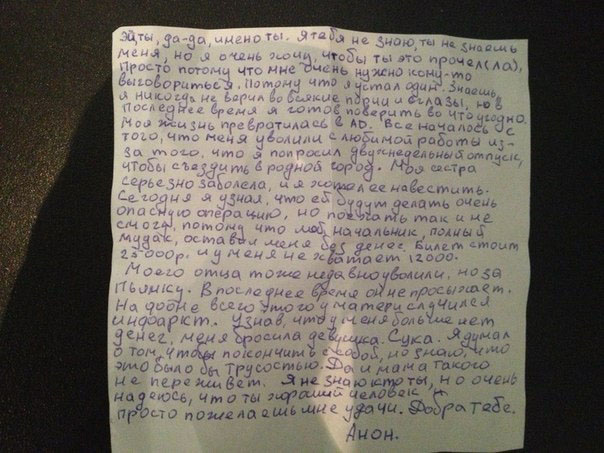 Эй, ты, да-да, имено ты. Я тебя не знаю, ты не знаешь
меня, но я очень хочу, чтобы ты это прочел(ла),
Просто потому что мне очень нужно кому-то
выговориться. Потому что я устал один. Знаешь,
я никогда не верил во всякие порчи и сглазы, но в
Последнее время я готов поверить во что угодно.
Моя жизнь превратилась в AD. Все началось с
того, что меня уволили с любимой работы из-
за того, что я попросил двухнедельный отпуск,
чтобы съездить в родной город. Моя сестра
серьезно заболела, и я хотел ее навестить.
Сегодня я узнал, что ей будут делать очень
опасную операцию, но поехать так и не
смог, потому что мой начальник, полный
мудак, оставил меня без денег. Билет стоит
25 000р. и у меня не хватает 12000.
Моего отца тоже недавно уволили, но за
Пьянку. В последнее время он не просыхает.
На фоне всего этого у матери случился
индоаркт. Узнав, что у меня больше нет
денег, меня бросила девушка. Сука. Я думал
о том, чтобы покончить с собой, но знаю, что
это было бы трусостью. Да и мама такого
не переживет. Я не знаю кто ты, но очень
надеюсь, что ты хороший человек и
просто пожелаешь мне удачи. Добра тебе.
Анон.